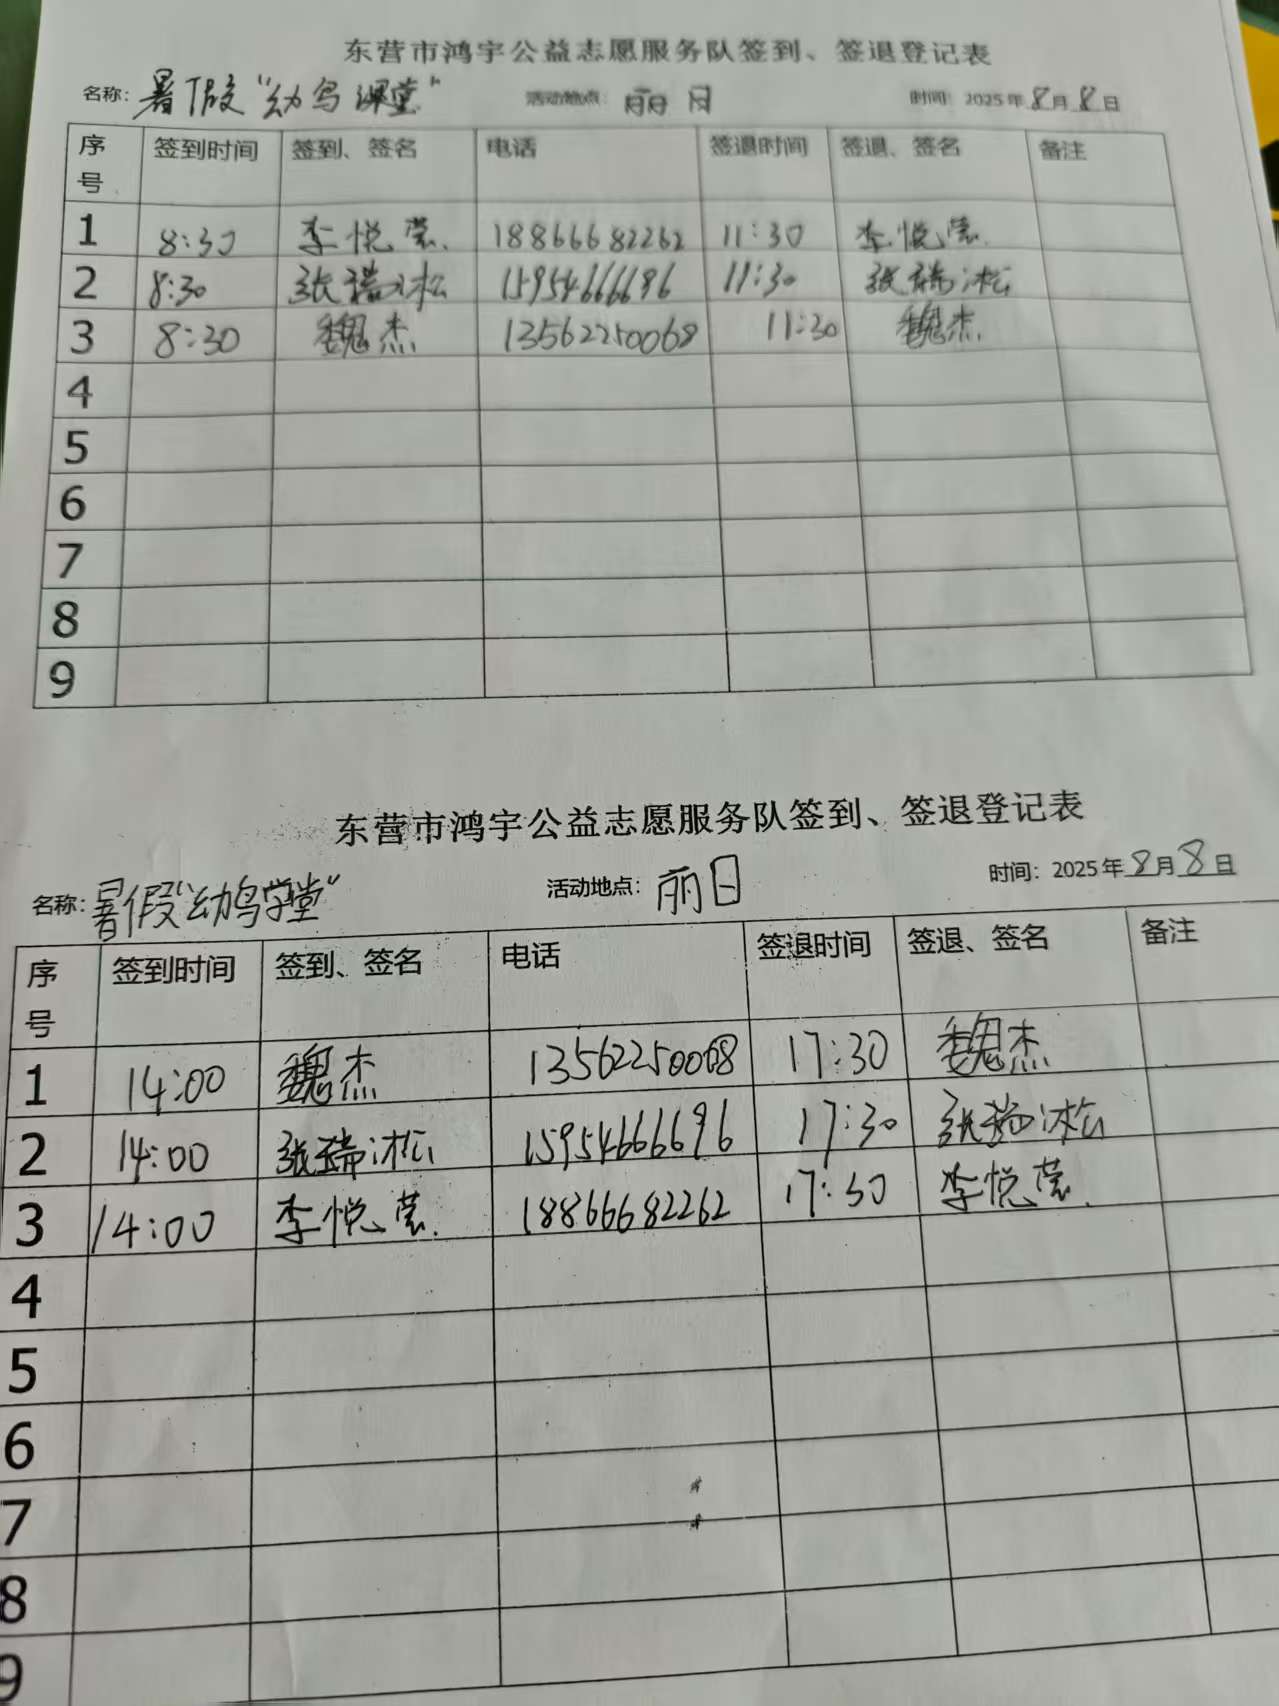 东营市鸿宇公益志愿服务队签到、签退登记表
名称：暑假“幼鸟课堂” 活动地点：丽日 时间：2025年8月8日
序号 签到时间 签到、签名 电话 签退时间 签退、签名 备注
1 8:30 李悦莹 18866682262 11:30 李悦莹
2 8:30 张瑞冰松 15954666696 11:30 张瑞冰松
3 8:30 魏杰 13562250068 11:30 魏杰
4
5
6
7
8
9
东营市鸿宇公益志愿服务队签到、签退登记表
名称：暑假“幼鸟学堂” 活动地点：丽日 时间：2025年8月8日
序号 签到时间 签到、签名 电话 签退时间 签退、签名 备注
1 14:00 魏杰 13562250068 17:30 魏杰
2 14:00 张瑞冰松 15954666696 17:30 张瑞冰松
3 14:00 李悦莹 18866682262 17:30 李悦莹
4
5
6
7
8
9